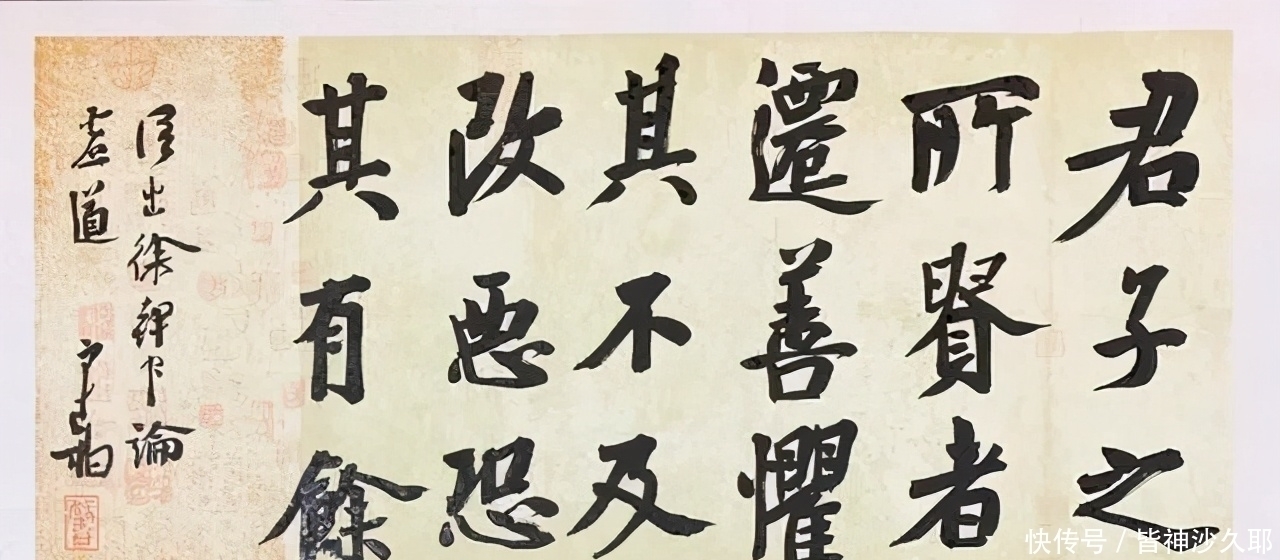 君子之
所賢者
遷善懼
其不及
改惡恐
其有餘
語出徐幹中論
虛道
快传号 / 皆神沙久耶